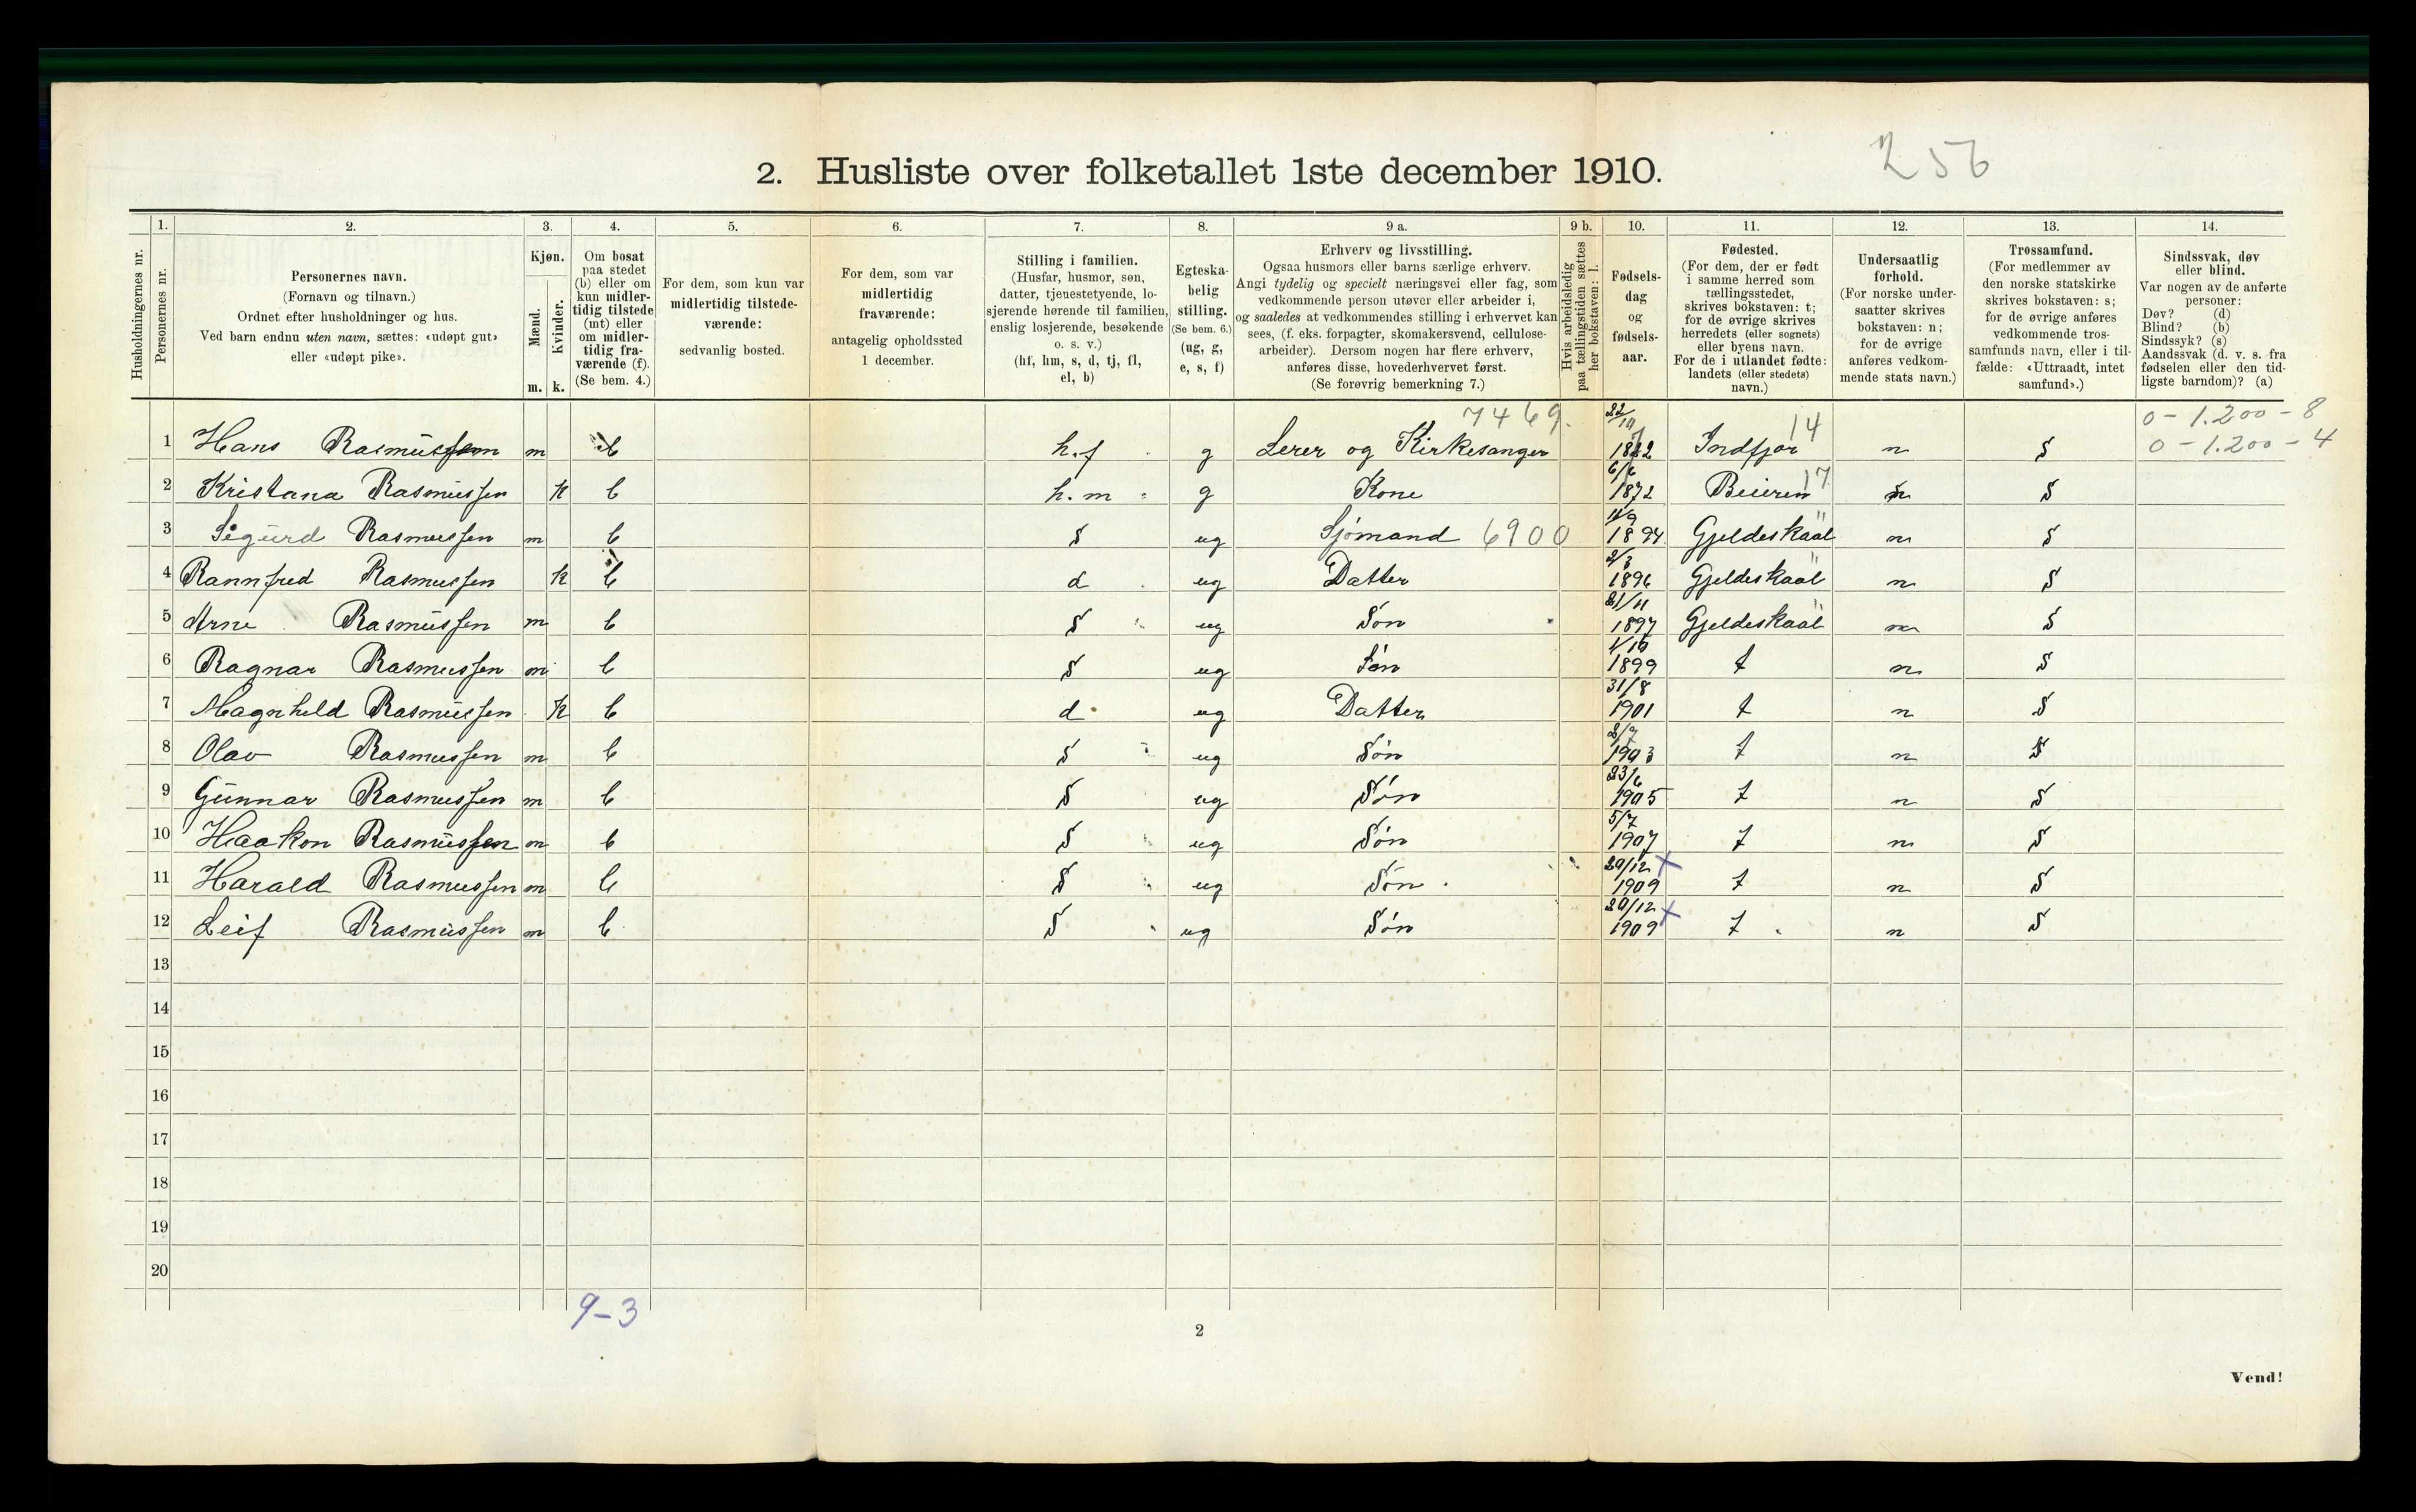 256
2. Husliste over folketallet 1ste december 1910.
Husholdningernes nr.
1.
Personernes nr.
2.
Personernes navn.
(Fornavn og tilnavn.)
Ordnet efter husholdninger og hus.
Ved barn endnu uten navn, sættes: «udøpt gut»
eller «udøpt pike».
3.
Kjøn.
Mænd.
Kvinder.
m. k.
4.
Om bosat
paa stedet
(b) eller om
kun midler-
tidig tilstede
(mt) eller
om midler-
tidig fra-
værende (f).
(Se bem. 4.)
5.
For dem, som kun var
midlertidig tilstede-
værende:
sedvanlig bosted.
6.
For dem, som var
midlertidig
fraværende:
antagelig opholdssted
1 december.
7.
Stilling i familien.
(Husfar, husmor, søn,
datter, tjenestetyende, lo-
sjerende hørende til familien,
enslig losjerende, besøkende
o. s. v.)
(hf, hm, s, d, tj, fl,
el, b)
8.
Egteska-
belig
stilling.
(Se bem. 6.)
(ug, g,
e, s, f)
9 a.
Erhverv og livsstilling.
Ogsaa husmors eller barns særlige erhverv.
Angi tydelig og specielt næringsvei eller fag, som
vedkommende person utøver eller arbeider i,
og saaledes at vedkommendes stilling i erhvervet kan
sees, (f. eks. forpagter, skomakersvend, cellulose-
arbeider). Dersom nogen har flere erhverv,
anføres disse, hovederhvervet først.
(Se forøvrig bemerkning 7.)
9 b.
Hvis arbeidsledig
paa tællingstiden sættes
her bokstaven: l.
10.
Fødsels-
dag
og
fødsels-
aar.
11.
Fødested.
(For dem, der er født
i samme herred som
tællingsstedet,
skrives bokstaven: t;
for de øvrige skrives
herredets (eller sognets)
eller byens navn.
For de i utlandet fødte:
landets (eller stedets)
navn.)
12.
Undersaatlig
forhold.
(For norske under-
saatter skrives
bokstaven: n;
for de øvrige
anføres vedkom-
mende stats navn.)
13.
Trossamfund.
(For medlemmer av
den norske statskirke
skrives bokstaven: s;
for de øvrige anføres
vedkommende tros-
samfunds navn, eller i til-
fælde: «Uttraadt, intet
samfund».)
14.
Sindssvak, døv
eller blind.
Var nogen av de anførte
personer:
Døv? (d)
Blind? (b)
Sindssyk? (s)
Aandssvak (d. v. s. fra
fødselen eller den tid-
ligste barndom)? (a)
7469. 14 0 - 1.200 - 8
1 Hans Rasmussen m b h.f g Lerer og Kirkesanger Indfjor n S 0 - 1.200 - 4
2 Kristana Rasmussen k b h.m g Kone 6/6 1872 Beieren 17 n S
3 Sigurd Rasmussen m b S ug Sjömand 6900 1894 Gjeldeskaal n S
4 Rannfred Rasmussen k b d ug Datter 2/3 1896 Gjeldeskaal n S
5 Arne Rasmussen m b S ug Søn 21/11 1897 Gjeldeskaal n S
6 Ragnar Rasmussen m b S ug Søn 1/10 1899 t n S
7 Magnhild Rasmussen k b d ug Datter 31/8 1901 t n S
8 Olav Rasmussen m b S ug Søn 2/7 1903 t n S
9 Gunnar Rasmussen m b S ug Søn 23/6 1905 t n S
10 Haakon Rasmussen m b S ug Søn 5/7 1907 t n S
11 Harald Rasmussen m b S ug Søn 20/12 1909 × t n S
12 Leif Rasmussen m b S ug Søn 20/12 1909 × t n S
13
14
15
16
17
18
19
20
9-3
2
Vend!